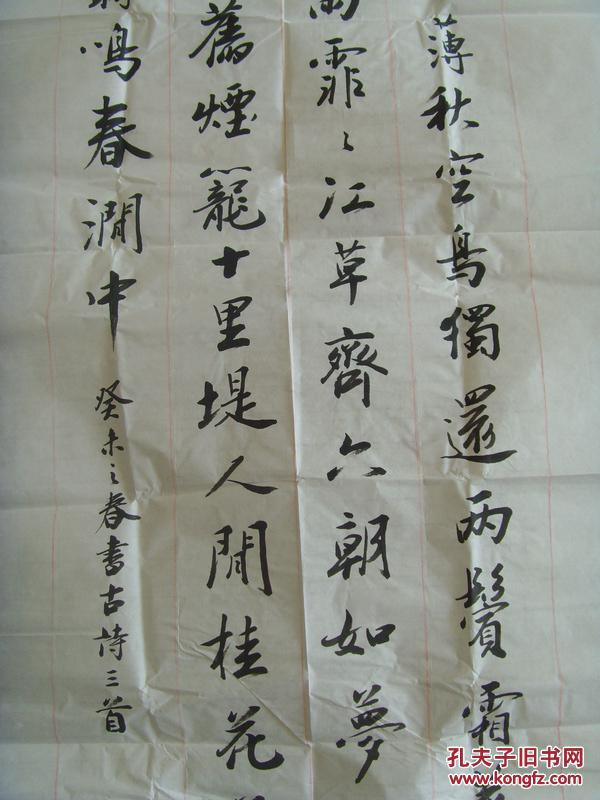 薄秋空鳥獨還两鬢霜
雨霏〻江草齊六朝如夢
舊煙籠十里堤人閒桂花
鳴春澗中
癸未之春書古詩三首
孔夫子旧书网
www.kongfz.com